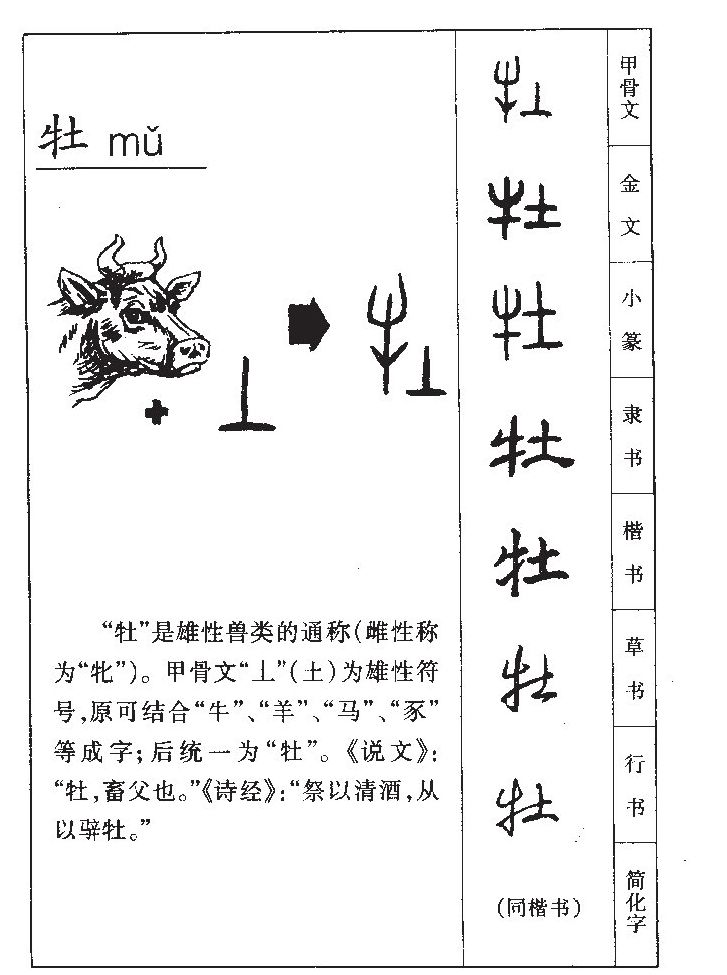 牡 mǔ
“牡”是雄性兽类的通称(雌性称
为“牝”)。甲骨文“丄”(土)为雄性符
号,原可结合“牛”、“羊”、“马”、“豕”
等成字;后统一为“牡”。《说文》:
“牡,畜父也。”《诗经》:“祭以清酒,从
以骍牡。”
牡 甲骨文
牡 金文
牡 小篆
牡 隶书
牡 楷书
牡 草书
牡 行书
(同楷书) 简化字